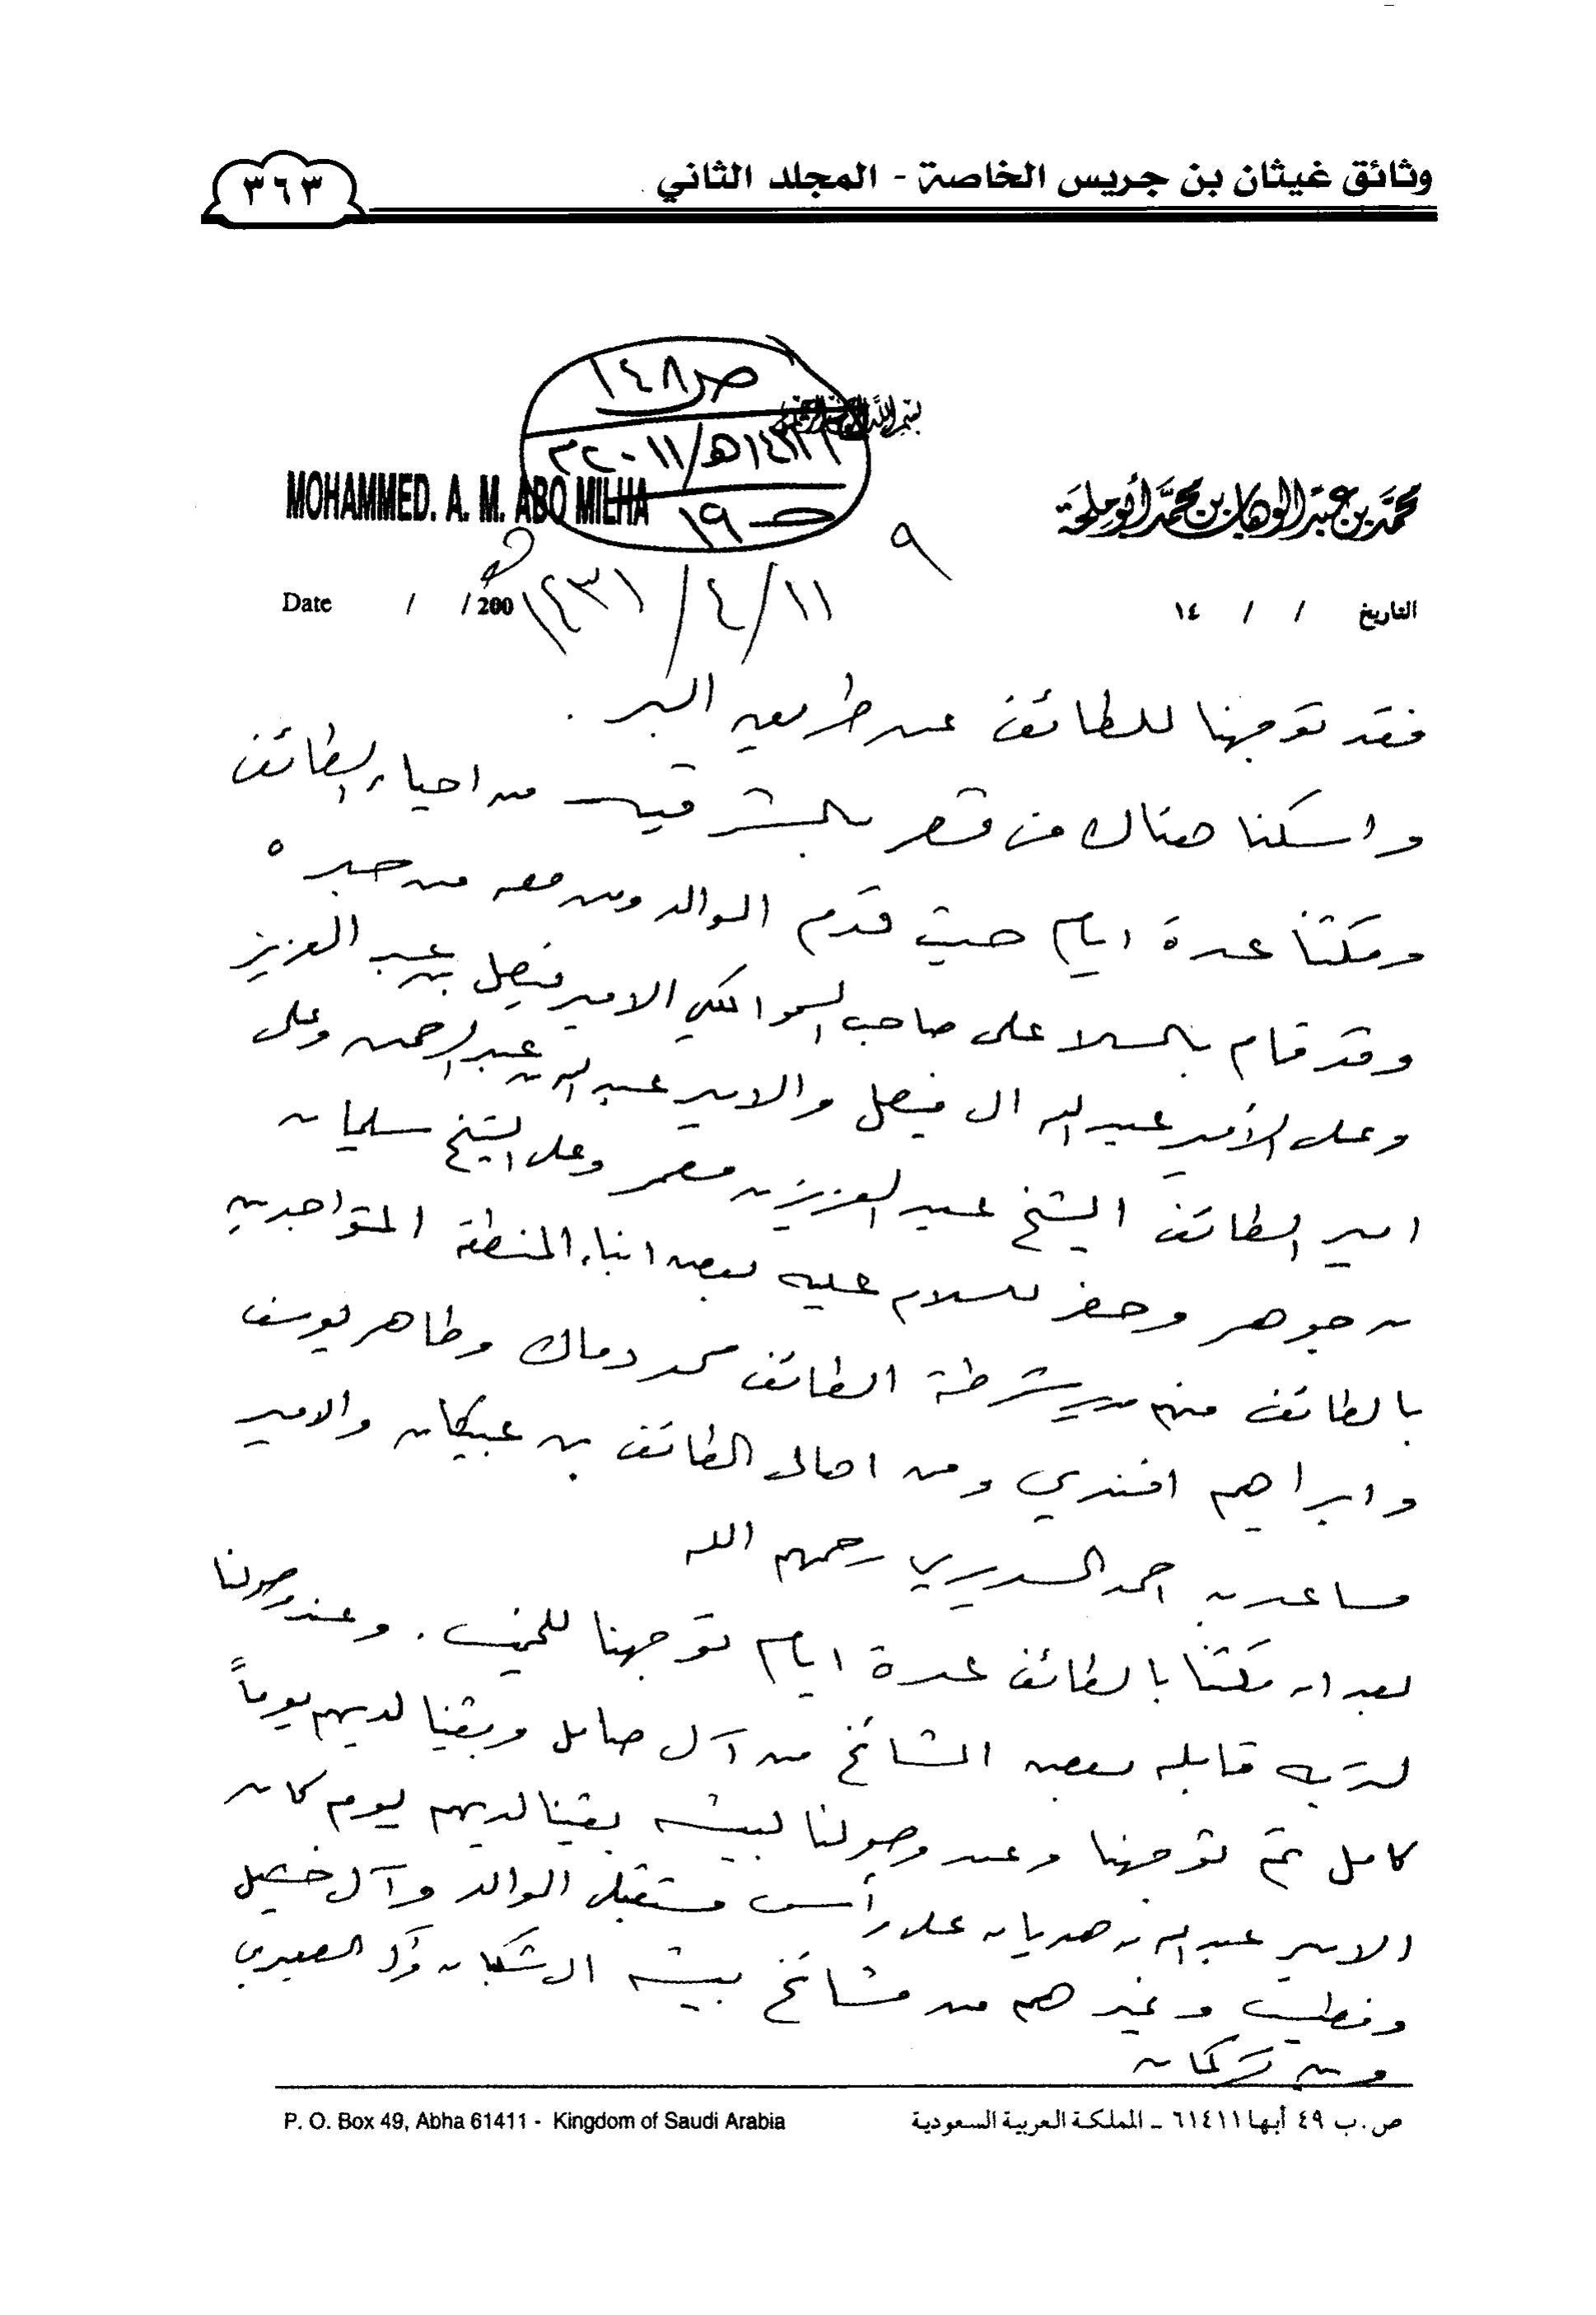 وثائق غيثان بن جريس الخاصة - المجلد الثاني
٣٦٣
ص١٤٨
١٤٣٢هـ/٢٠١١م
حـ ١٩
MOHAMMED. A. M. ABO MILHA
محمد بن عبد الوهاب بن محمد أبو ملحة
٩
Date / /200
١٤٣١/٤/١١
التاريخ / / ١٤
فقد توجهنا للطائف عن طريق البر .
واسكنا هناك في قصر بالشرقية من احياء الطائف
ومكثنا عدة ايام حيث قدم الوالد ومن معه من جده
وقد قام بالسلا على صاحب السمو الملكي الامير فيصل بن عبد العزيز
وعلى الأمير عبد الله ال فيصل والامير عبد الله بن عبد الرحمن وعلى
امير الطائف الشيخ عبد العزيز بن معمر وعلى الشيخ سليمان
بن جوهر وحضر للسلام عليه بعض ابناء المنطقة المتواجدين
بالطائف منهم مدير شرطة الطائف محمد دماك وطاهر يوسف
وابراهيم افندي ومن اهالي الطائف بن عبيكان والامير
مساعد بن احمد السديري رحمهم الله
بعد ان مكثنا بالطائف عدة ايام توجهنا للخميس . وعند وصولنا
لتربه قابله بعض المشائخ من آل صامل وبقينا لديهم يوماً
كامل ثم توجهنا وعند وصولنا لبيشه بقينا لديهم يوم كان
الامير عبد الله بن هديان على رأس مستقبل الوالد وآل
وغيرهم من مشائخ بيشه ال شكبان وآل الصعيري
وبن تركان
P. O. Box 49, Abha 61411 - Kingdom of Saudi Arabia
ص . ب ٤٩ أبها ٦١٤١١ ــ المملكة العربية السعودية